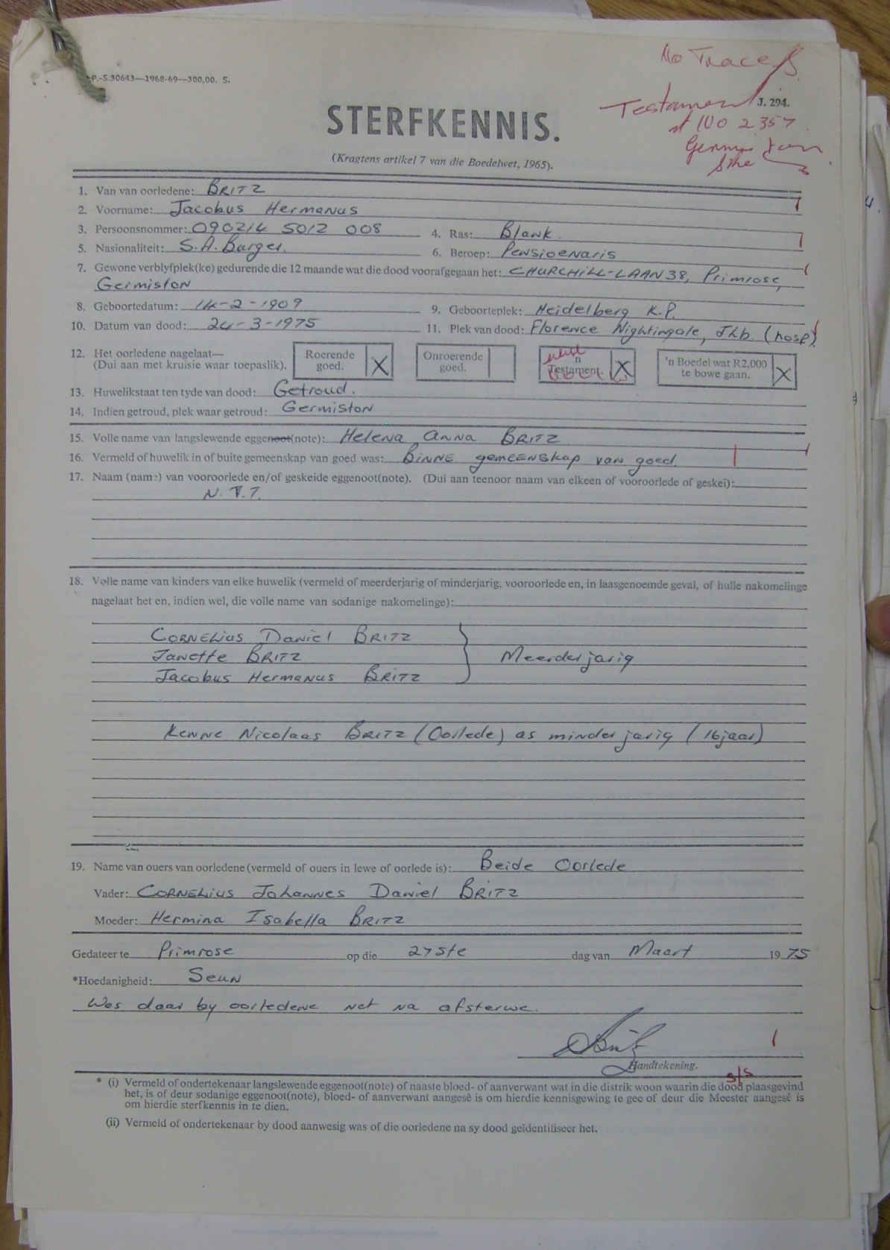 P.-S.30643—1968-69—300,00. S.
No Trace
Testament
J. 294.
No 2357
STERFKENNIS.
(Kragtens artikel 7 van die Boedelwet, 1965).
1. Van van oorledene: BRITZ
2. Voorname: Jacobus Hermanus
3. Persoonsnommer: 090214 5012 008 4. Ras: Blank.
5. Nasionaliteit: S.A. Burger. 6. Beroep: Pensioenaris
7. Gewone verblyfplek(ke) gedurende die 12 maande wat die dood voorafgegaan het: CHURCHILL-LAAN 38, Primrose,
Germiston
8. Geboortedatum: 14-2-1909 9. Geboorteplek: Heidelberg K.P.
10. Datum van dood: 24-3-1975 11. Plek van dood: Florence Nightingale, Jhb. (hosp)
12. Het oorledene nagelaat—
(Dui aan met kruisie waar toepaslik).
Roerende goed. X
Onroerende goed.
'n Testament. X
'n Boedel wat R2,000 te bowe gaan. X
13. Huwelikstaat ten tyde van dood: Getroud.
14. Indien getroud, plek waar getroud: Germiston
15. Volle name van langslewende eggenoot(note): Helena Anna BRITZ
16. Vermeld of huwelik in of buite gemeenskap van goed was: BINNE gemeenskap van goed.
17. Naam (name) van vooroorlede en/of geskeide eggenoot(note). (Dui aan teenoor naam van elkeen of vooroorlede of geskei):
N.V.T.
18. Volle name van kinders van elke huwelik (vermeld of meerderjarig of minderjarig, vooroorlede en, in laasgenoemde geval, of hulle nakomelinge
nagelaat het en, indien wel, die volle name van sodanige nakomelinge):
CORNELIUS Daniel BRITZ
Janette BRITZ Meerderjarig
Jacobus Hermanus BRITZ
Kenne Nicolaas BRITZ (Oorlede) as minderjarig (16jaar)
19. Name van ouers van oorledene (vermeld of ouers in lewe of oorlede is): Beide Oorlede
Vader: CORNELIUS Johannes Daniel BRITZ
Moeder: Hermina Isabella BRITZ
Gedateer te Primrose op die 27ste dag van Maart 1975
*Hoedanigheid: Seun
Was daar by oorledene net na afsterwe.
Handtekening.
* (i) Vermeld of ondertekenaar langslewende eggenoot(note) of naaste bloed- of aanverwant wat in die distrik woon waarin die dood plaasgevind
het, is of deur sodanige eggenoot(note), bloed- of aanverwant aangesê is om hierdie kennisgewing te gee of deur die Meester aangesê is
om hierdie sterfkennis in te dien.
(ii) Vermeld of ondertekenaar by dood aanwesig was of die oorledene na sy dood geïdentifiseer het.